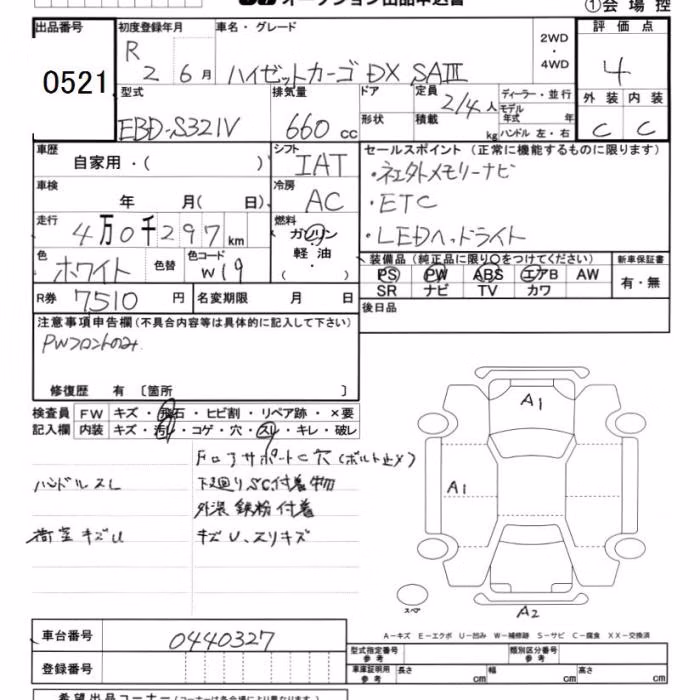 オークション出品申込書
①会場控
出品番号 0521
初度登録年月 R 2 6月
車名・グレード ハイゼットカーゴ DX SAⅢ
2WD・4WD
評価点 4
外装 C 内装 C
型式 EBD-S321V
排気量 660 cc
ドア 形状
定員 2/4人
積載 kg
ディーラー・並行
モデル年式 年
ハンドル 左・右
車歴 自家用・( )
シフト IAT
セールスポイント (正常に機能するものに限ります)
・社外メモリーナビ
・ETC
・LEDヘッドライト
車検 年 月( 日)
冷房 AC
走行 4万0千297km
燃料 ガソリン・軽油 ( ・ )
色 ホワイト 色替
色コード W19
装備品 (純正品に限り○をつけてください)
PS PW ABS エアB AW
SR ナビ TV カワ
新車保証書 有・無
R券 7510円
名変期限 月 日
後日品
注意事項申告欄(不具合内容等は具体的に記入して下さい)
PWフロントのみ
修復歴 有 〔箇所 〕
検査員記入欄
FW キズ・飛石・ヒビ割・リペア跡・×要
内装 キズ・汚れ・コゲ・穴・スレ・キレ・破レ
ハンドルスレ
荷室キズU
Fロアサポート C穴(ボルト止メ)
下廻りSC付着物
外装 鉄粉付着
キズU、スリキズ
A1
A1
A2
スペア
A-キズ E-エクボ U-凹み W-補修跡 S-サビ C-腐食 XX-交換済
車台番号 0440327
登録番号
型式指定番号 参考
類別区分番号 参考
車庫証明用 参考 長さ cm 幅 cm 高さ cm
希望出品コーナー (コーナーは各会場により異なります。)